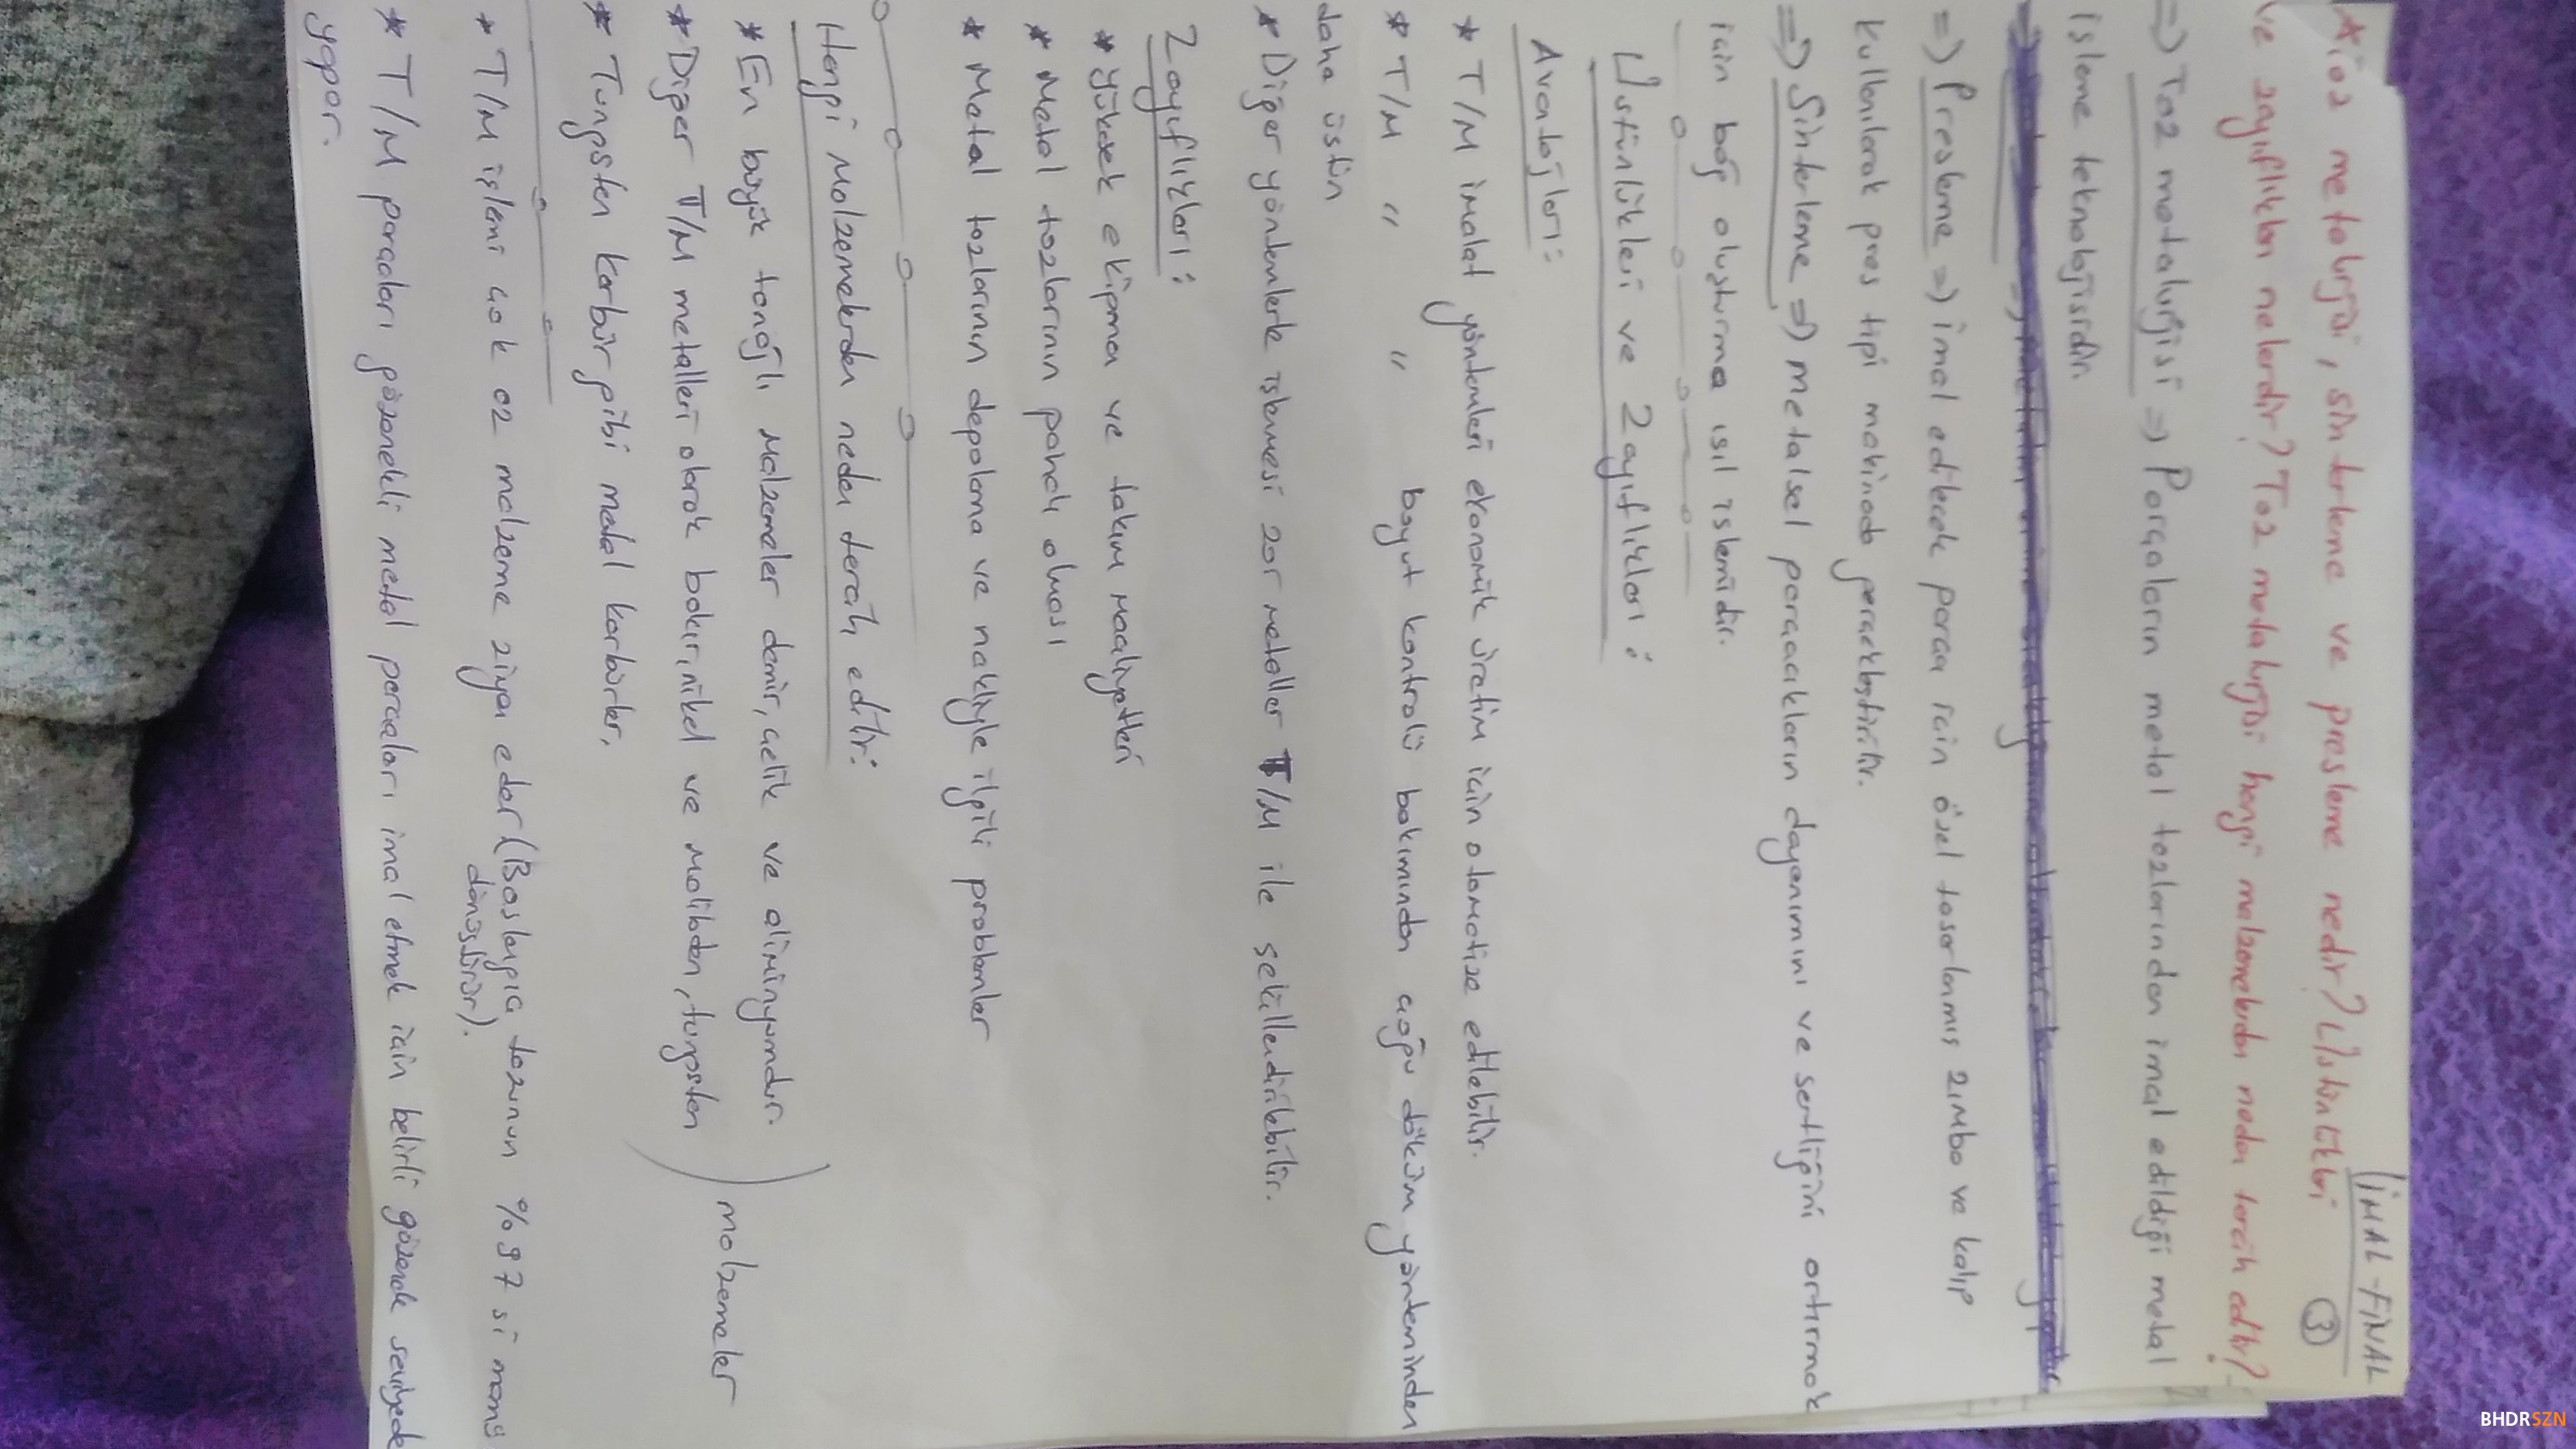 İMAL-FİNAL
③
* Toz metalurjisi, sinterleme ve presleme nedir? Üstünlükleri
ve zayıflıkları nelerdir? Toz metalurjisi hangi malzemelerden neden tercih edilir?
=) Toz metalurjisi =) Parçaların metal tozlarından imal edildiği metal
işleme teknolojisidir.
=) Presleme =) imal edilecek parça için özel tasarlanmış zımba ve kalıp
kullanılarak pres tipi makinada gerçekleştirilir.
=) Sinterleme =) metalsel parçacıkların dayanımını ve sertliğini artırmak
için bağ oluşturma ısıl işlemidir.
Üstünlükleri ve Zayıflıkları:
Avantajları:
* T/M imalat yöntemleri ekonomik üretim için otomatize edilebilir.
* T/M " " boyut kontrolü bakımından çoğu döküm yönteminden
daha üstün
* Diğer yöntemlerle işlenmesi zor metaller T/M ile şekillendirilebilir.
Zayıflıkları:
* Yüksek ekipman ve takım maaliyetleri
* Metal tozlarının pahalı olması
* Metal tozlarının depolama ve nakliyle ilgili problemler
Hangi Malzemelerden neden tercih edilir:
* En büyük tonajlı malzemeler demir, çelik ve aliminyumdur.
* Diğer T/M metalleri olarak bakır, nikel ve molibden, tungsten
* Tungsten karbür gibi metal karbürler,
) malzemeler
* T/M işlemi çok az malzeme ziyan eder (Başlangıç tozunun %97 si mamüle
dönüştürür).
* T/M parçaları gözenekli metal parçaları imal etmek için belirli gözenek seviyede
yapar.
BHDRSZN